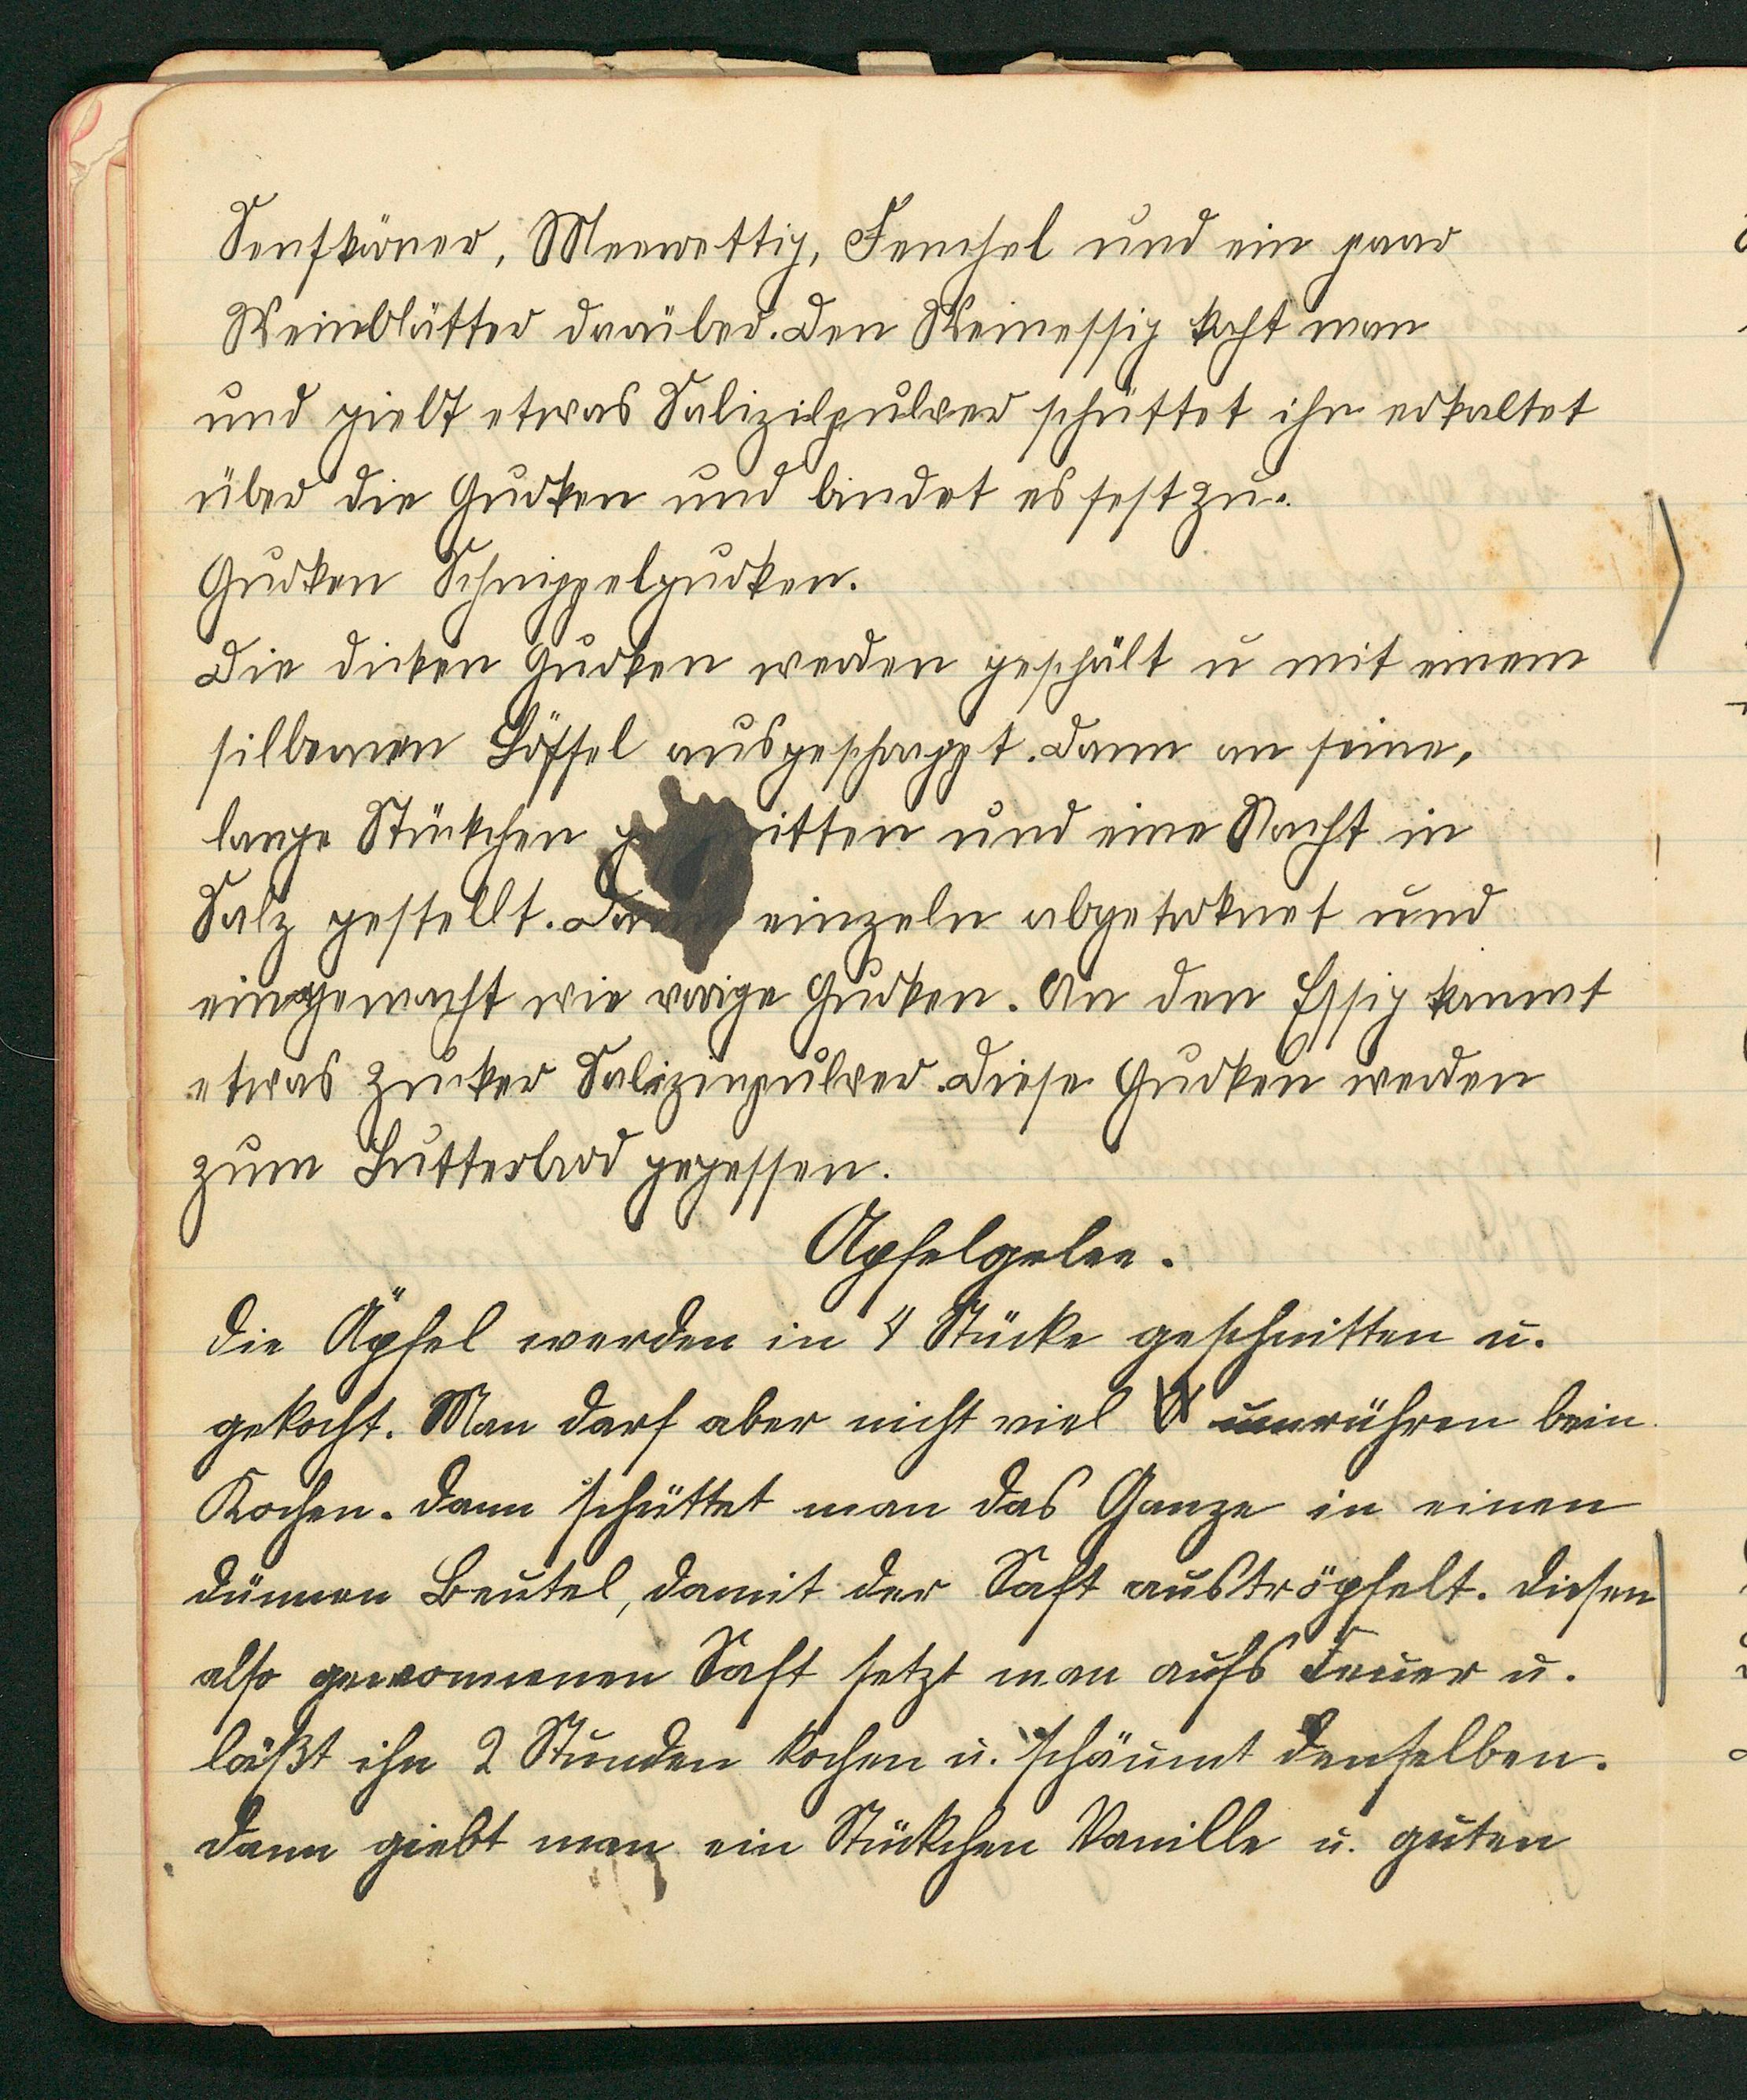 Senfkörner, Meerrettig, Fenchel und ein paar
Weinblätter darüber. Den Weinessig kocht man
und giebt etwas Salizilpulver schüttet ihn erkaltet
über die Gurken und bindet es fest zu.
Gurken Schnippelgurken.
Die dicken Gurken werden geschält u mit einem
silbernen Löffel ausgeschrappt. Dann an feine,
lange Stückchen itten und eine Nacht in
Salz gestellt. Dann einzeln abgetroknet und
eingemacht wie vorige Gurken. An den Essig kommt
etwas Zucker Salizinpulver. Diese Gurken werden
zum Butterbrod gegessen.
Apfelgelee.
Die Äpfel werden in 4 Stücke geschnitten u.
gekocht. Man darf aber nicht viel umrühren bein
Kochen. Dann schüttet man das Ganze in einen
dünnen Beutel, damit der Saft auströpfelt. Diesen
also gewonnenen Saft setzt man aufs Feuer u.
läßt ihn 2 Stunden kochen u. schäumt denselben.
Dann giebt man ein Stückchen Vanille u. guten